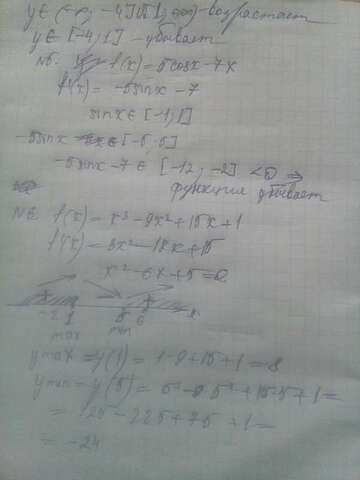 y∈(-∞; -4]∪[1; +∞) - возрастает
y∈[-4; 1] - убывает
№5. f(x) = 5cosx - 7x
f'(x) = -5sinx - 7
sinx∈[-1; 1]
-5sinx ∈[-5; 5]
-5sinx - 7 ∈ [-12; -2] <0 ⇒
функция убывает
№6 f(x) = x³ - 9x² + 15x + 1
f'(x) = 3x² - 18x + 15
x² - 6x + 5 = 0
+ - +
-2 1 5 6 x
max min
ymax = y(1) = 1 - 9 + 15 + 1 = 8
ymin = y(5) = 5³ - 9·5² + 15·5 + 1 =
= 125 - 225 + 75 + 1 =
= -24